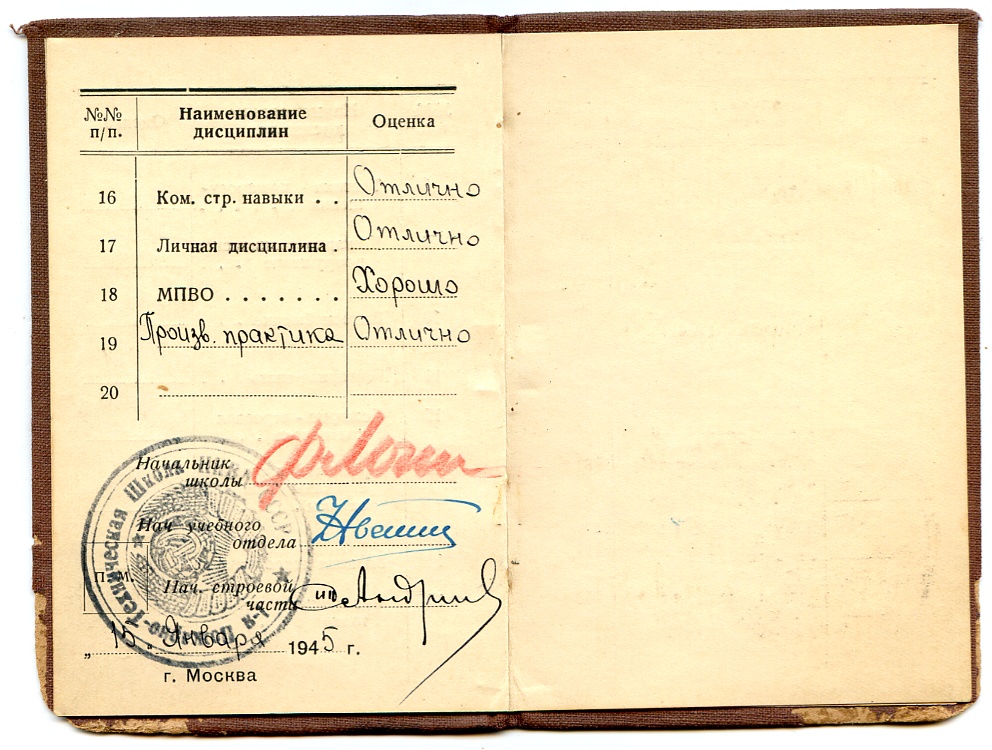 №№ п/п. Наименование дисциплин Оценка
16 Ком. стр. навыки . . Отлично
17 Личная дисциплина . Отлично
18 МПВО . . . . . . . Хорошо
19 Произв. практика Отлично
20
Начальник
школы
Нач учебного
отдела
П.М.
Нач. строевой
части
Техническая Школа
„15“ Января 1945 г.
г. Москва